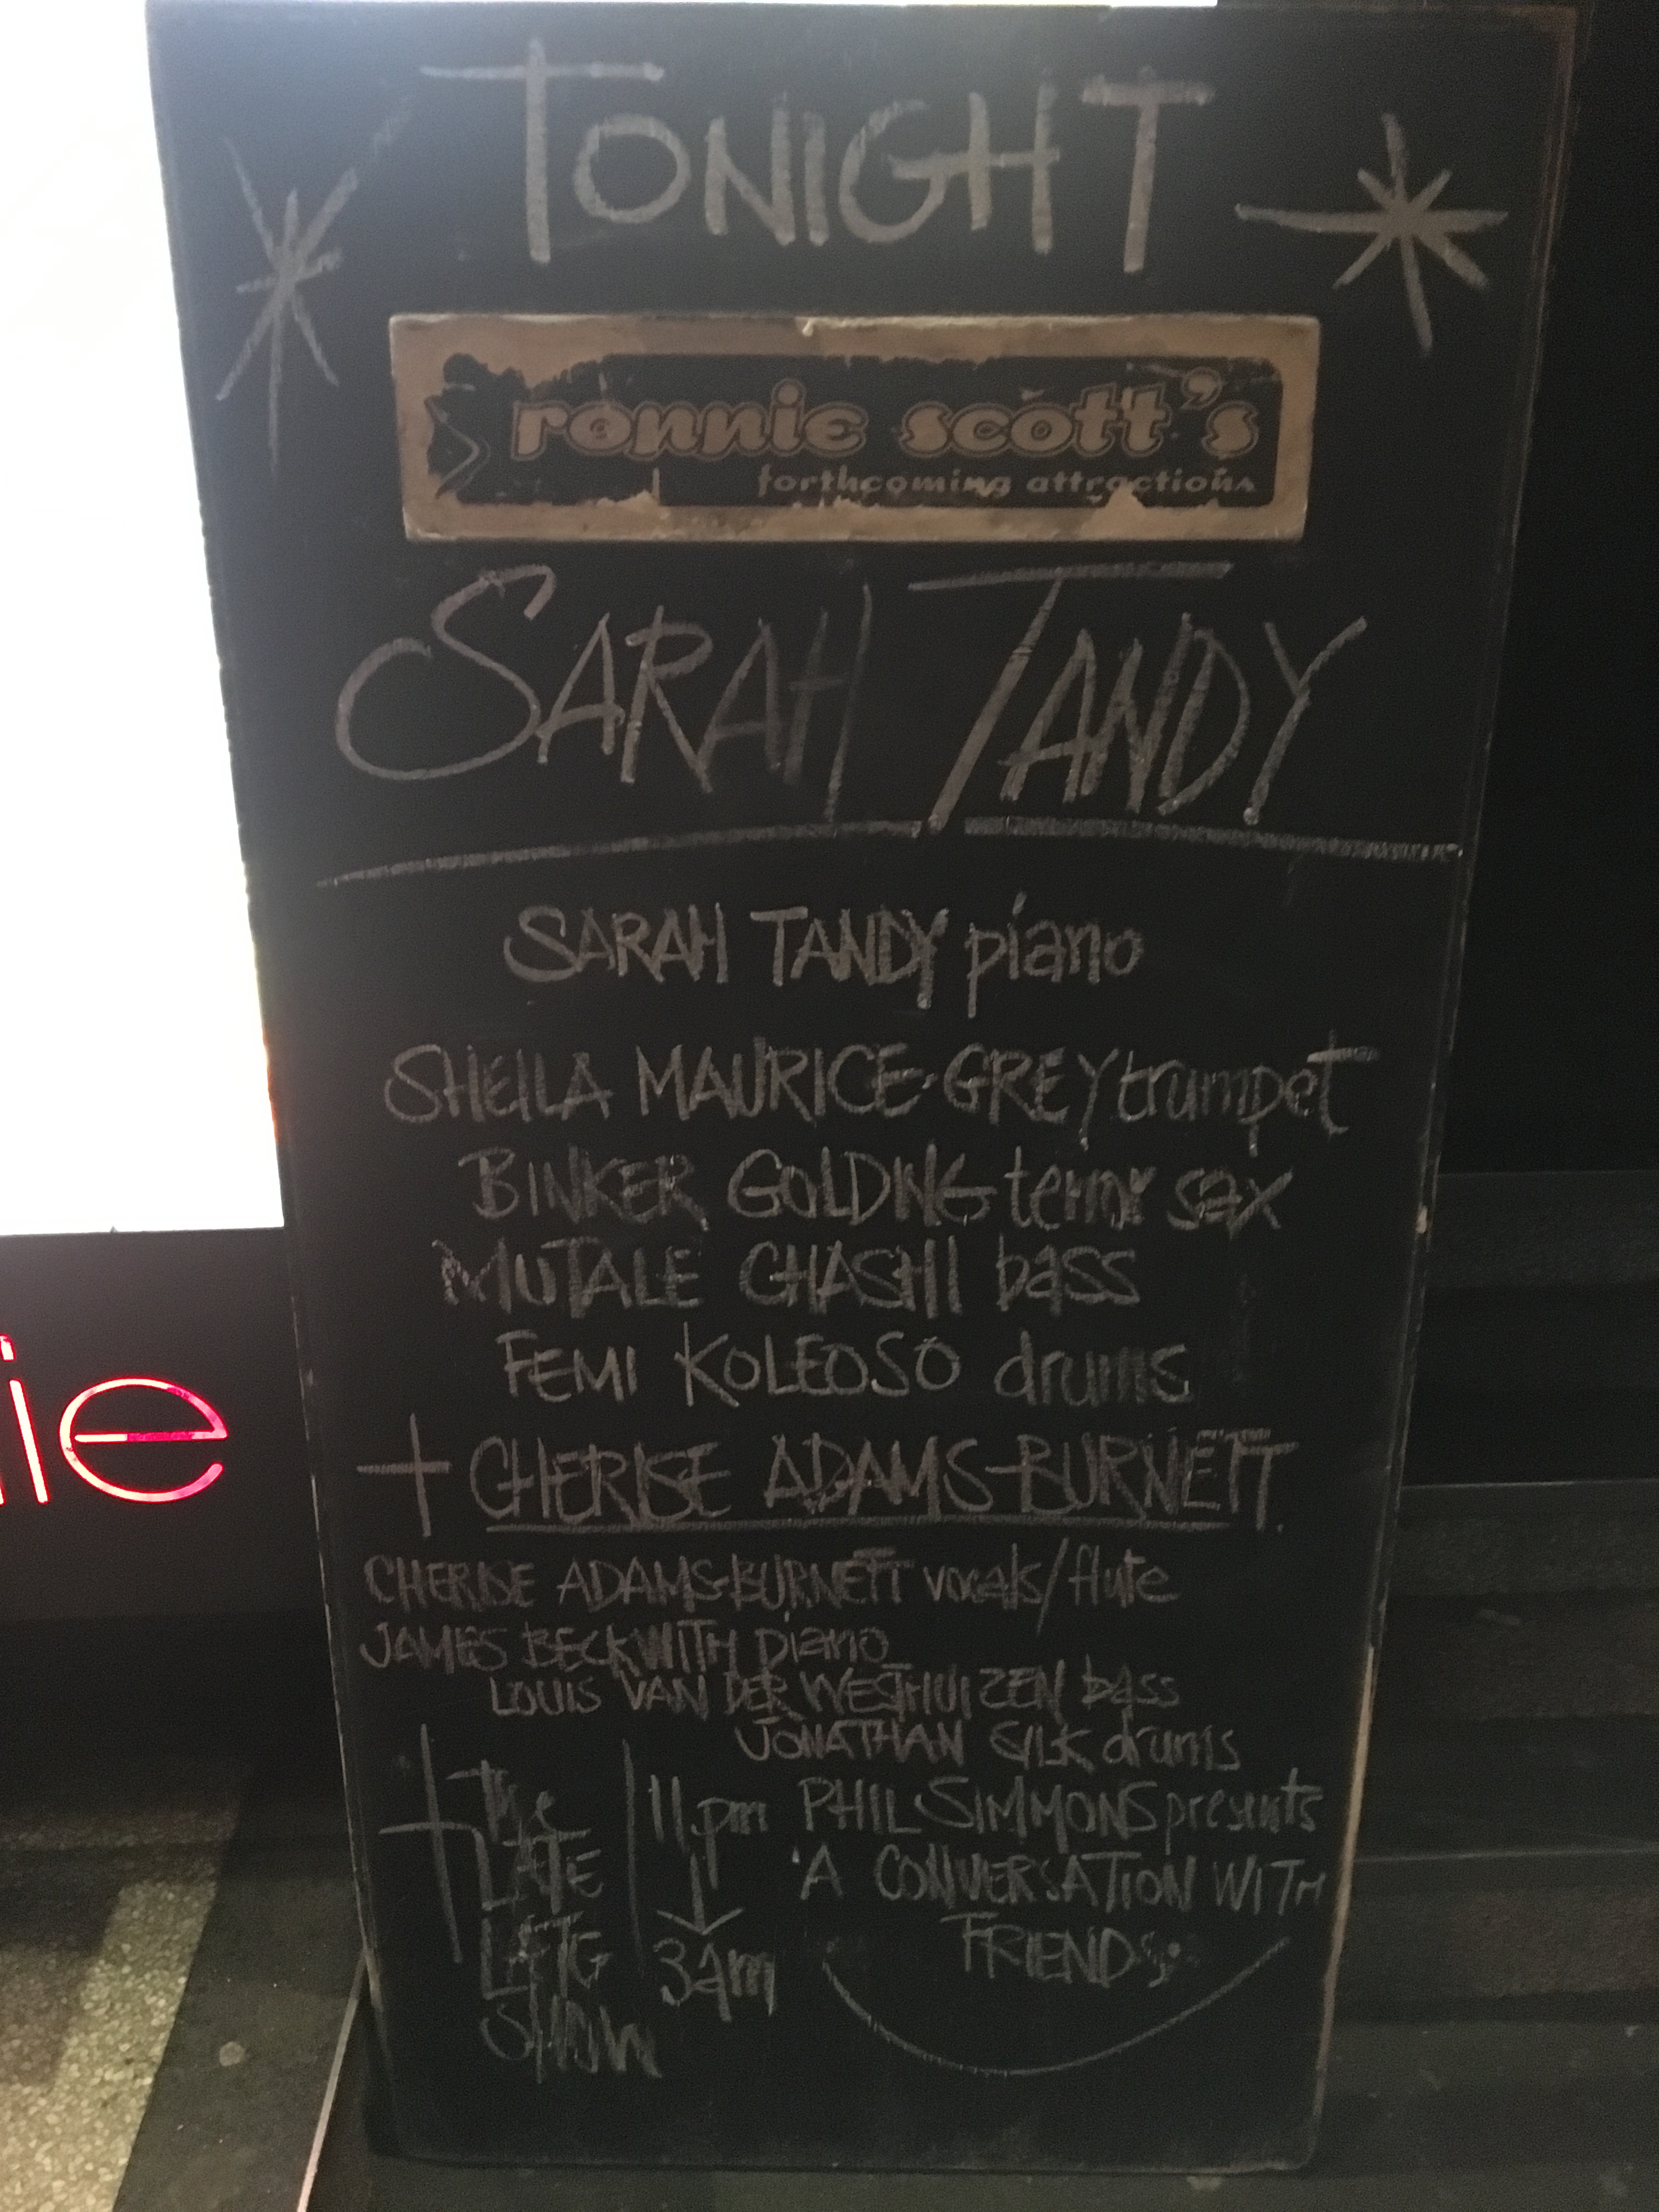 TONIGHT
ronnie scott's
forthcoming attractions
SARAH TANDY
SARAH TANDY piano
SHEILA MAURICE-GREY trumpet
BINKER GOLDING tenor sax
MUTALE CHASHI bass
FEMI KOLEOSO drums
+ CHERISE ADAMS-BURNETT
CHERISE ADAMS-BURNETT vocals/flute
JAMES BECKWITH piano
LOUIS VAN DER WESTHUIZEN bass
JONATHAN SILK drums
+ The
LATE
LATE
SHOW
11pm
3am
PHIL SIMMONS presents
'A CONVERSATION WITH
FRIENDS'
ie